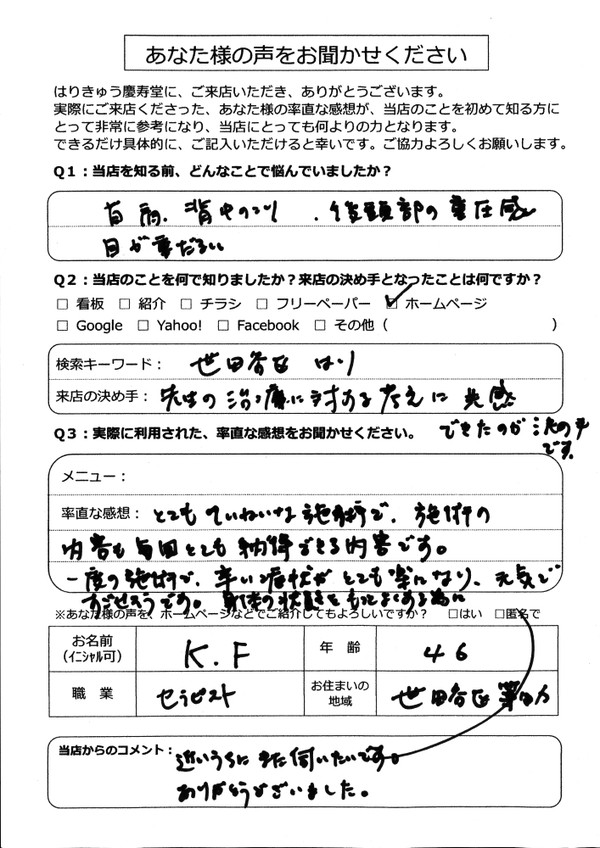 あなた様の声をお聞かせください
はりきゅう慶寿堂に、ご来店いただき、ありがとうございます。
実際にご来店くださった、あなた様の率直な感想が、当店のことを初めて知る方に
とって非常に参考になり、当店にとっても何よりの力となります。
できるだけ具体的に、ご記入いただけると幸いです。ご協力よろしくお願いします。
Q1：当店を知る前、どんなことで悩んでいましたか？
首、肩、背中のコリ、後頭部の重圧感
目が重だるい
Q2：当店のことを何で知りましたか？来店の決め手となったことは何ですか？
□ 看板 □ 紹介 □ チラシ □ フリーペーパー ☑ ホームページ
□ Google □ Yahoo! □ Facebook □ その他（ ）
検索キーワード： 世田谷区 はり
来店の決め手： 先生の治療に対する考えに共感
できたのが決め手
です。
Q3：実際に利用された、率直な感想をお聞かせください。
メニュー：
率直な感想： とてもていねいな施術で、施術の
内容も毎回とても納得できる内容です。
一度の施術で、辛い症状がとても楽になり、元気で
すごせそうです。身体の状態をもっとよくする為に
※あなた様の声を、ホームページなどでご紹介してもよろしいですか？ □はい □匿名で
お名前 K.F 年 齢 46
（ｲﾆｼｬﾙ可）
職 業 セラピスト お住まいの 世田谷区
地域
当店からのコメント： 近いうちにまた伺いたいです。
ありがとうございました。